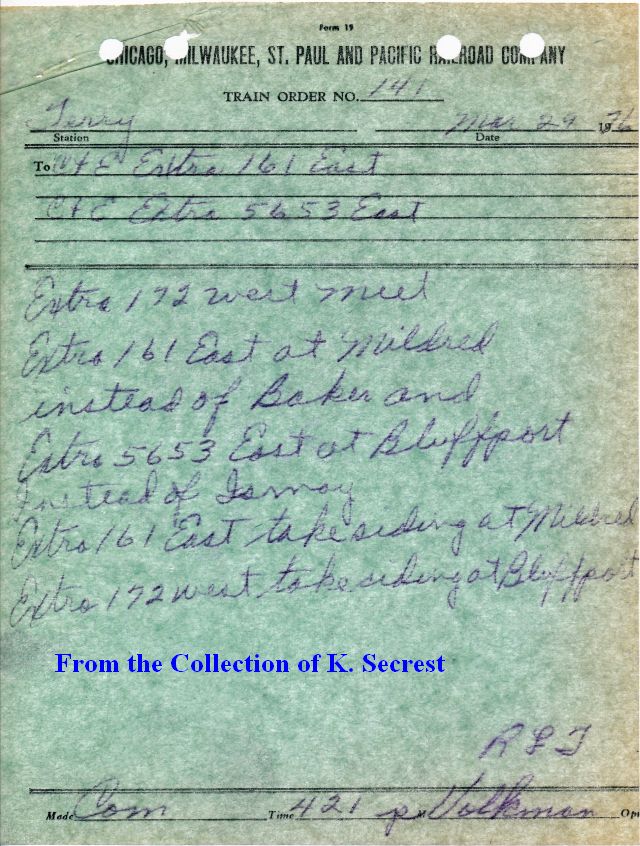 Form 19
CHICAGO, MILWAUKEE, ST. PAUL AND PACIFIC RAILROAD COMPANY
TRAIN ORDER NO. 141
Terry Mar 29 1976
Station Date
To C & E Extra 161 East
C & E Extra 5653 East
Extra 172 west meet
Extra 161 East at Mildred
instead of Baker and
Extra 5653 East at Bluffport
instead of Ismay
Extra 161 East take siding at Mildred
Extra 172 west take siding at Bluffport
From the Collection of K. Secrest
R L T
Made Com Time 421 p M Volkman Opr